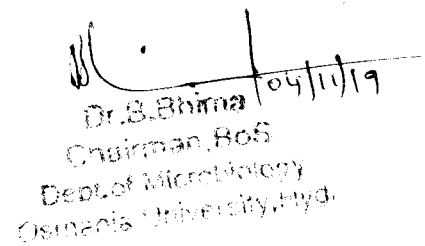 04/11/19
Dr.B.Bhima
Chairman,BoS
Dept.of Microbiology
Osmania University,Hyd.